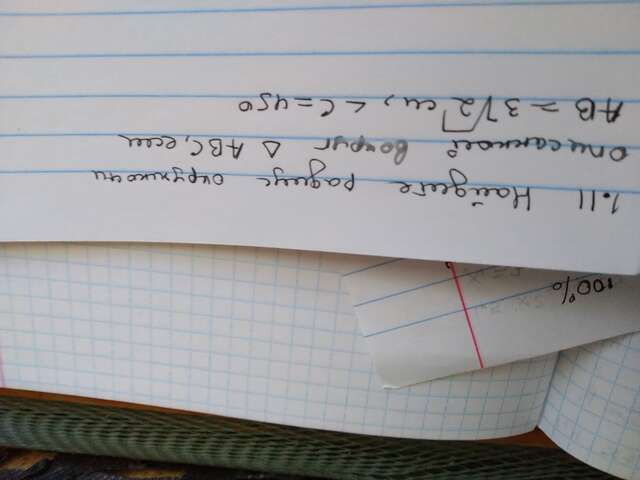 100%
1.11 Найдите радиус окружности
описанной вокруг △ ABC, если
AB = 3√2 см, ∠C = 45°